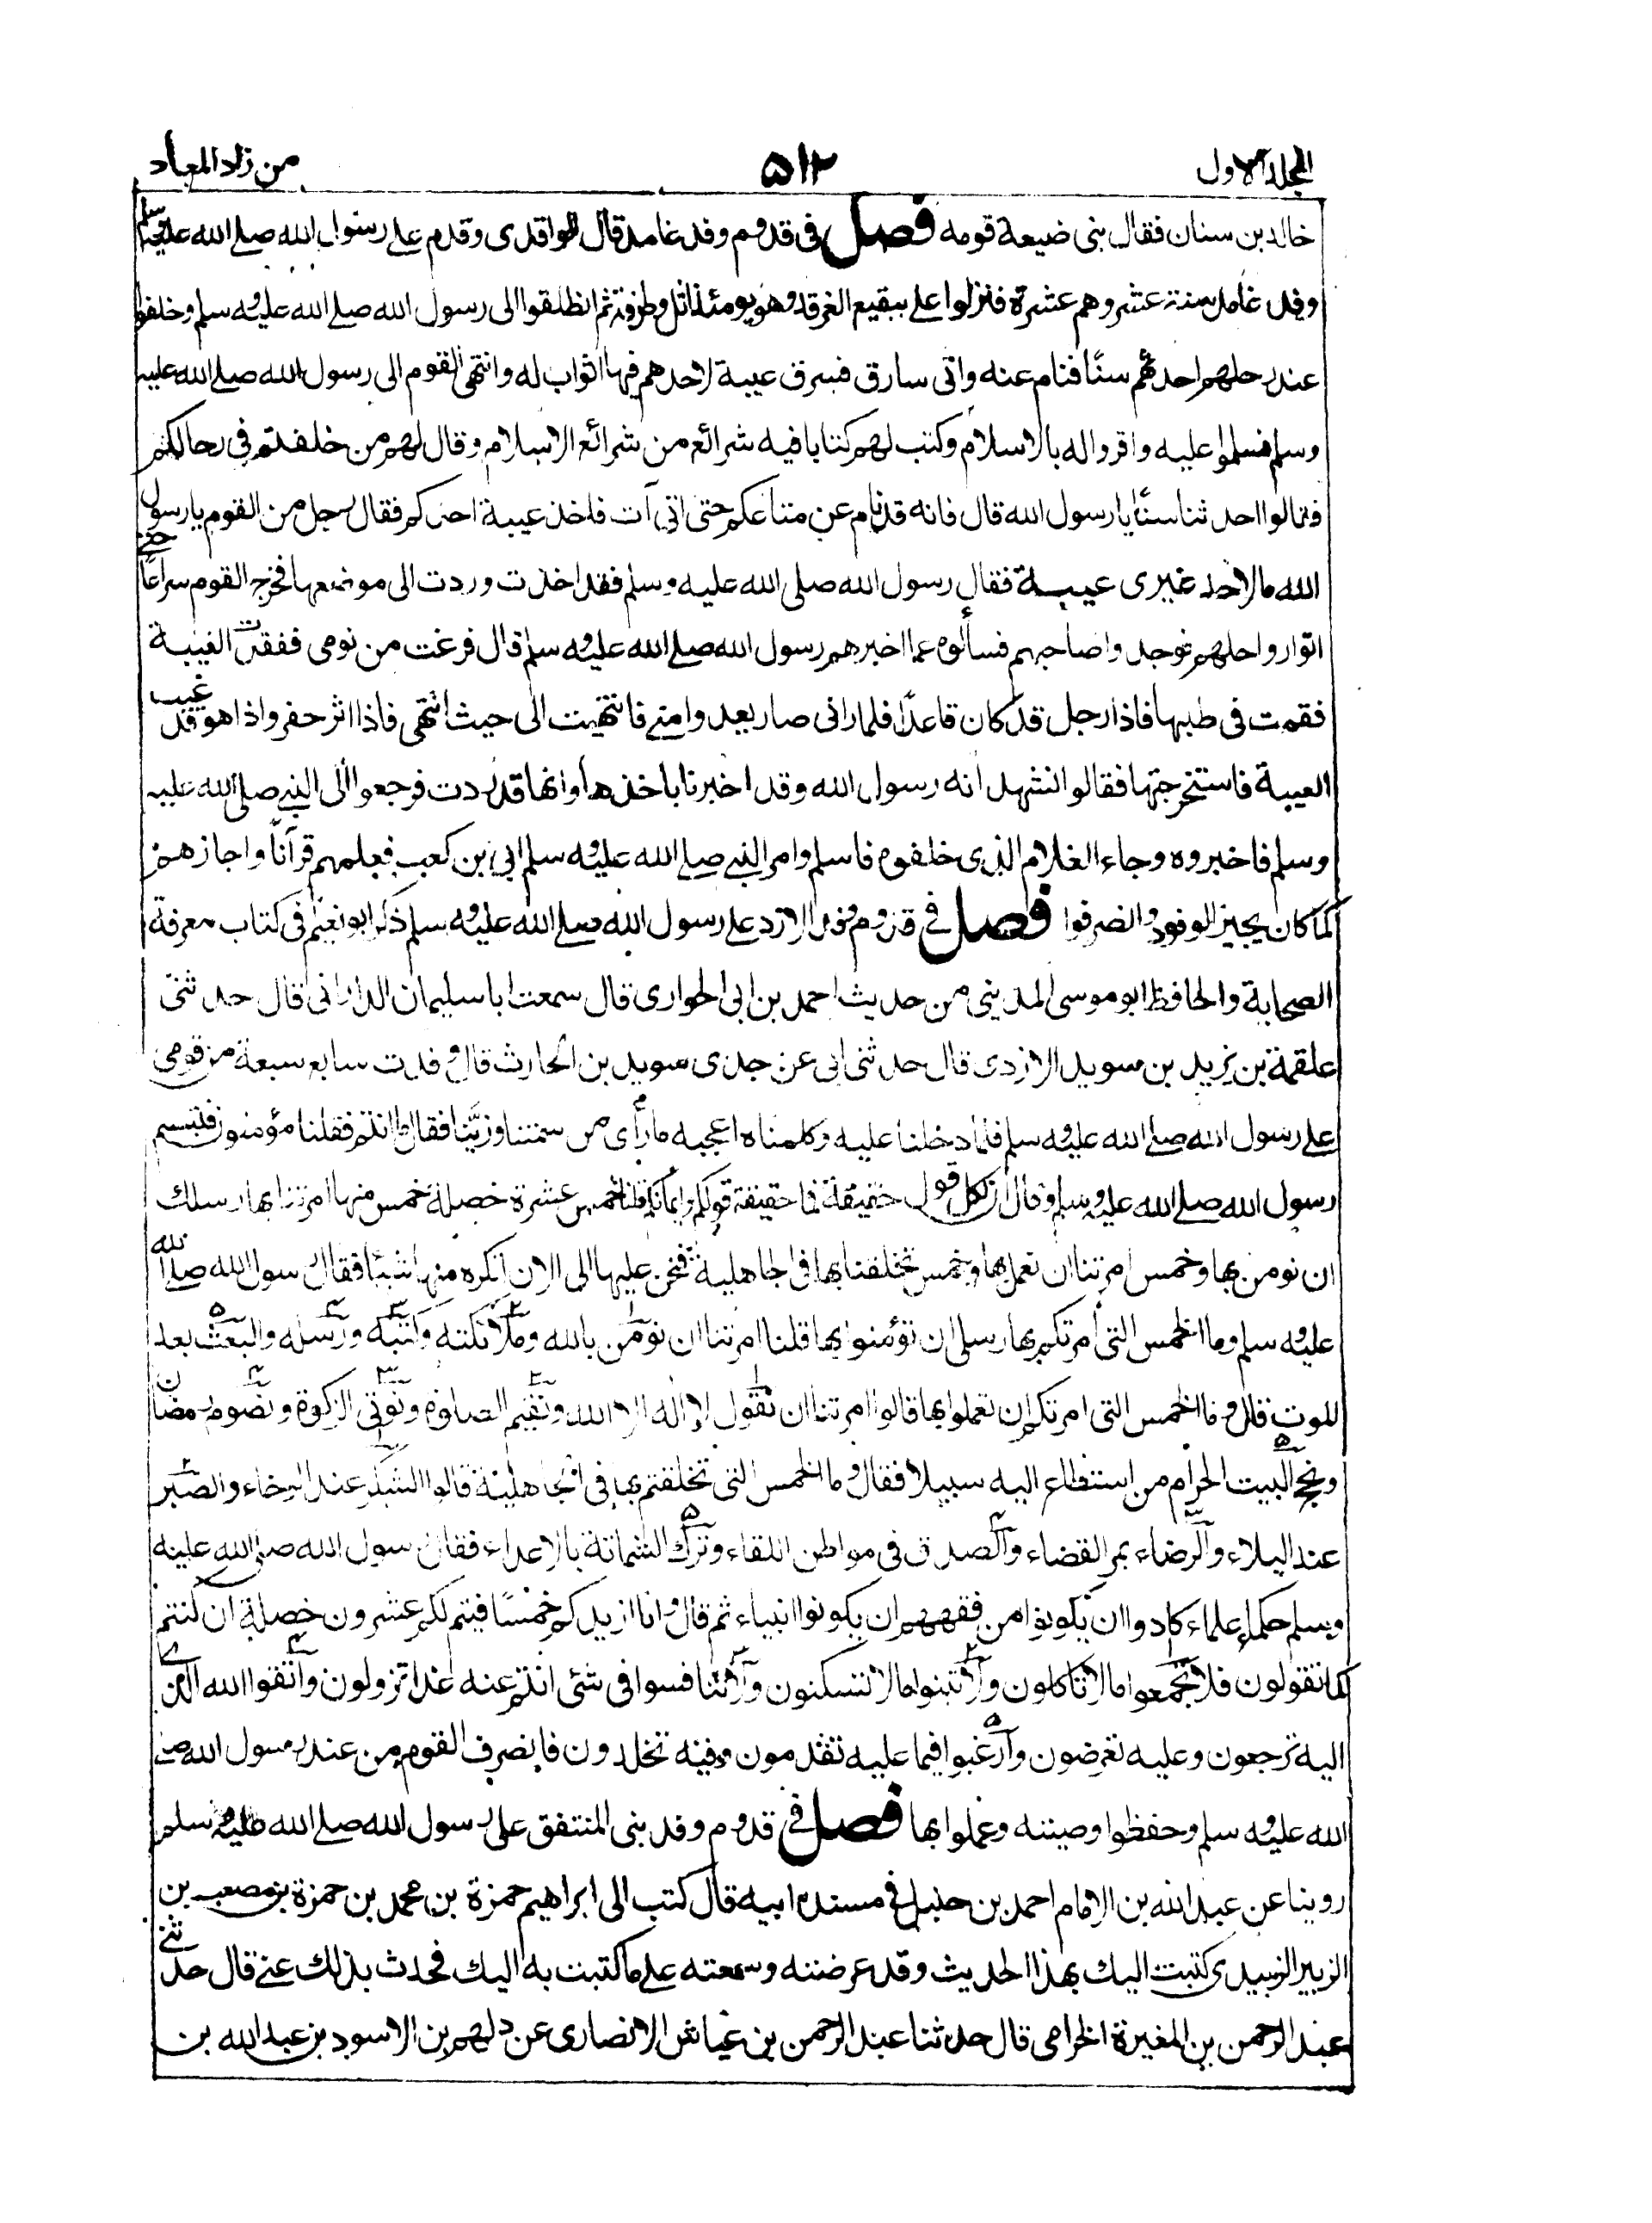 المجلد الاول ۵۱۲ من زاد المعاد
خالد بن سنان فقال بنى ضيعة قومه فصل فى قدوم وفد غامد قال الواقدى وقدم على رسول الله صلے الله عليه وسلم
وفد غامد سنة عشر وهم عشرة فنزلوا على ببقيع الغرقد وهو يومئذ اثل وطرفة ثم انطلقوا الى رسول الله صلے الله عليه وسلم وخلفوا
عند رحلهم احدثهم سنًّا فنام عنه واتى سارق فسرق عيبة لاحدهم فيها اثواب له وانتهى القوم الى رسول الله صلے الله عليه
وسلم فسلموا عليه واقروا له بالاسلام وكتب لهم كتابا فيه شرائع من شرائع الاسلام وقال لهم من خلفتم فى رحالكم
فقالوا احدثنا سنًّا يا رسول الله قال فانه قد نام عن متاعكم حتى اتى آت فاخذ عيبة احدكم فقال رجل من القوم يا رسول
الله ما لاحد غيرى عيبة فقال رسول الله صلى الله عليه وسلم فقد اخذت وردت الى موضعها فخرج القوم سراعًا حتے
اتوا رواحلهم فوجدوا صاحبهم فسألوه عما اخبرهم رسول الله صلے الله عليه وسلم قال فرغت من نومى ففقدت العيبة
فقمت فى طلبها فاذا رجل قد كان قاعدًا فلما رانى صار يعدو امنے فانتهيت الى حيث انتهى فاذا اثر حفر واذا هو قد غيب
العيبة فاستخرجتها فقالوا نشهد انه رسول الله وقد اخبرنا باخذها وانها قد ردت فرجعوا الى النبے صلى الله عليه
وسلم فاخبروه وجاء الغلام الذى خلفوه فاسلم وامر النبے صلے الله عليه وسلم ابى بن كعب فعلمهم قرآناً واجازهم
كما كان يجيز الوفود وانصرفوا فصل فے قدوم وفد الازد على رسول الله صلے الله عليه وسلم ذكر ابو نعيم فى كتاب معرفة
الصحابة والحافظ ابو موسى المدينى من حديث احمد بن ابى الحوارى قال سمعت ابا سليمان الدارانى قال حدثنى
علقمة بن يزيد بن سويد الازدى قال حدثنى ابى عن جدى سويد بن الحارث قال وفدت سابع سبعة من قومى
على رسول الله صلے الله عليه وسلم فلما دخلنا عليه وكلمناه اعجبه ما رأى من سمتنا وزيّنا فقال ما انتم فقلنا مؤمنون فتبسم
رسول الله صلے الله عليه وسلم وقال ان لكل قول حقيقة فما حقيقة قولكم وايمانكم قلنا خمس عشرة خصلة خمس منها امرتنا بها رسلك
ان نومن بها وخمس امرتنا ان نعمل بها وخمس تخلقنا بها فى الجاهلية فنحن عليها الى الان الا ان تكره منها شيئا فقال رسول الله صلے الله
عليه وسلم وما الخمس التى امرتكم بها رسلى ان تؤمنوا بها قلنا امرتنا ان نومن بالله وملائكته وكتبه ورسله والبعث بعد
الموت قال وما الخمس التى امرتكم ان تعملوا بها قالوا امرتنا ان نقول لا اله الا الله ونقيم الصلوة ونوتى الزكوة ونصوم رمضان
ونحج البيت الحرام من استطاع اليه سبيلا فقال وما الخمس التى تخلقتم بها فى الجاهلية قالوا الشكر عند الرخاء والصبر
عند البلاء والرضاء بمر القضاء والصدق فى مواطن اللقاء وترك الشماتة بالاعداء فقال رسول الله صلى الله عليه
وسلم حكماء علماء كادوا ان يكونوا من فقههم ان يكونوا انبياء ثم قال وانا ازيدكم خمسًا فيتم لكم عشرون خصلة ان كنتم
كما تقولون فلا تجمعوا ما لا تاكلون ولا تبنوا ما لا تسكنون ولا تنافسوا فى شئى انتم عنه غدا تزولون واتقوا الله الذى
اليه ترجعون وعليه تعرضون وارغبوا فيما عليه تقدمون وفيه تخلدون فانصرف القوم من عند رسول الله صلے
الله عليه وسلم وحفظوا وصيته وعملوا بها فصل فے قدوم وفد بنى المنتفق على رسول الله صلے الله عليه وسلم
روينا عن عبد الله بن الامام احمد بن حنبل فے مسند ابيه قال كتب الى ابراهيم حمزة بن محمد بن حمزة بن مصعب بن
الزبير الزبيدى كتبت اليك بهذا الحديث وقد عرضته وسمعته على ما كتبت به اليك فحدث بذلك عنے قال حدثنے
عبد الرحمن بن المغيرة الخرامى قال حدثنا عبد الرحمن بن عياش الانصارى عن دلهم بن الاسود بن عبد الله بن